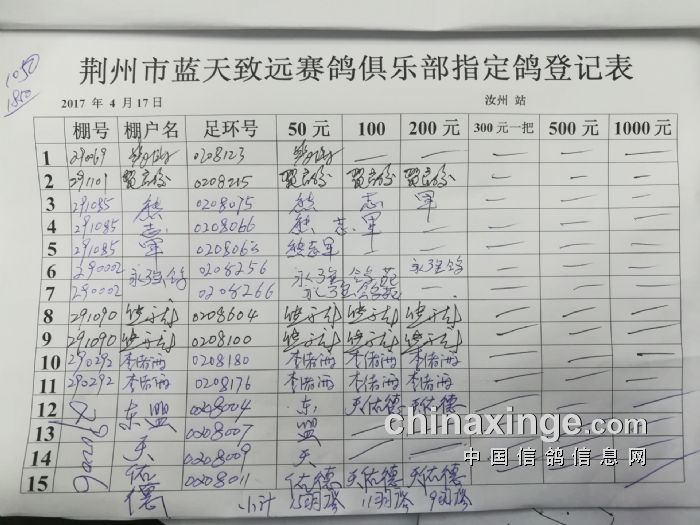 1050
1850
荆州市蓝天致远赛鸽俱乐部指定鸽登记表
2017 年 4 月 17 日 汝州 站
棚号 棚户名 足环号 50 元 100 200 元 300 元一把 500 元 1000 元
1 29069 0208123 — — — — —
2 291101 0208215 — — —
3 291085 熊 0208075 熊 志 军 — — —
4 291085 志 0208066 熊 志 军 — — — —
5 291085 军 0208063 熊志军 — — — — —
6 290002 永强鸽 0208256 永强鸽苑 永强鸽 — — —
7 290002 0208266 永强鸽苑 — — — —
8 291090 熊子龙 0208604 熊子龙 熊子龙 熊子龙 — — —
9 291090 熊子龙 0208100 熊子龙 熊子龙 熊子龙 — — —
10 290292 0208180 — — —
11 290292 0208176 — — —
12 东盟 0208004 东 天佑德 天佑德 — — —
13 0208007 盟 — — — — —
14 天 0208009 天 — — — — —
15 佑德 0208011 佑德 天佑德 天佑德 — — —
小计 15羽 11羽 9羽
chinaxinge.com
中国信鸽信息网